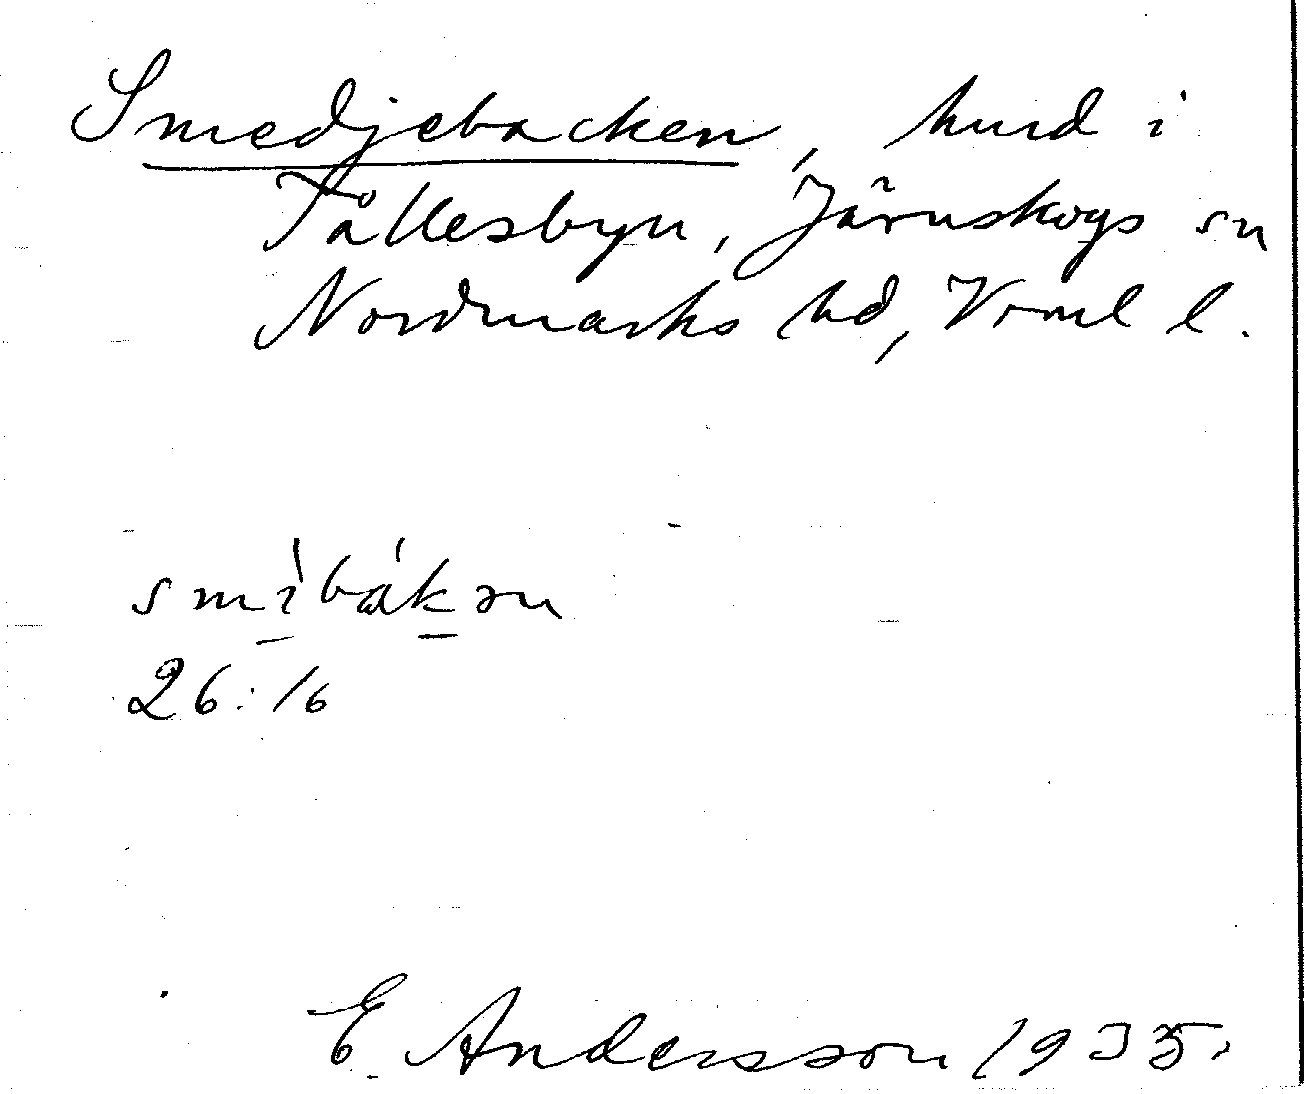 Smedjebacken, hmd i
Tållesbyn, Järnskogs sn
Nordmarks hd, Vrml l.
smìbákən
26:16
E Andersson 1935.